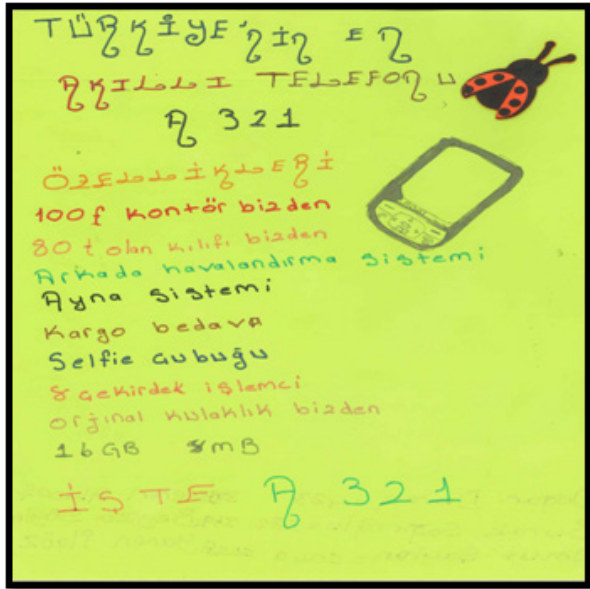 TÜRKİYE'NİN EN
AKILLI TELEFONU
A 321
ÖZELLİKLERİ
100₺ kontör bizden
80 ₺ olan kılıfı bizden
Arkada havalandırma sistemi
Ayna sistemi
Kargo bedava
Selfie Cubuğu
8 Cekirdek işlemci
orjinal kulaklık bizden
16GB 8mB
İŞTE A 321